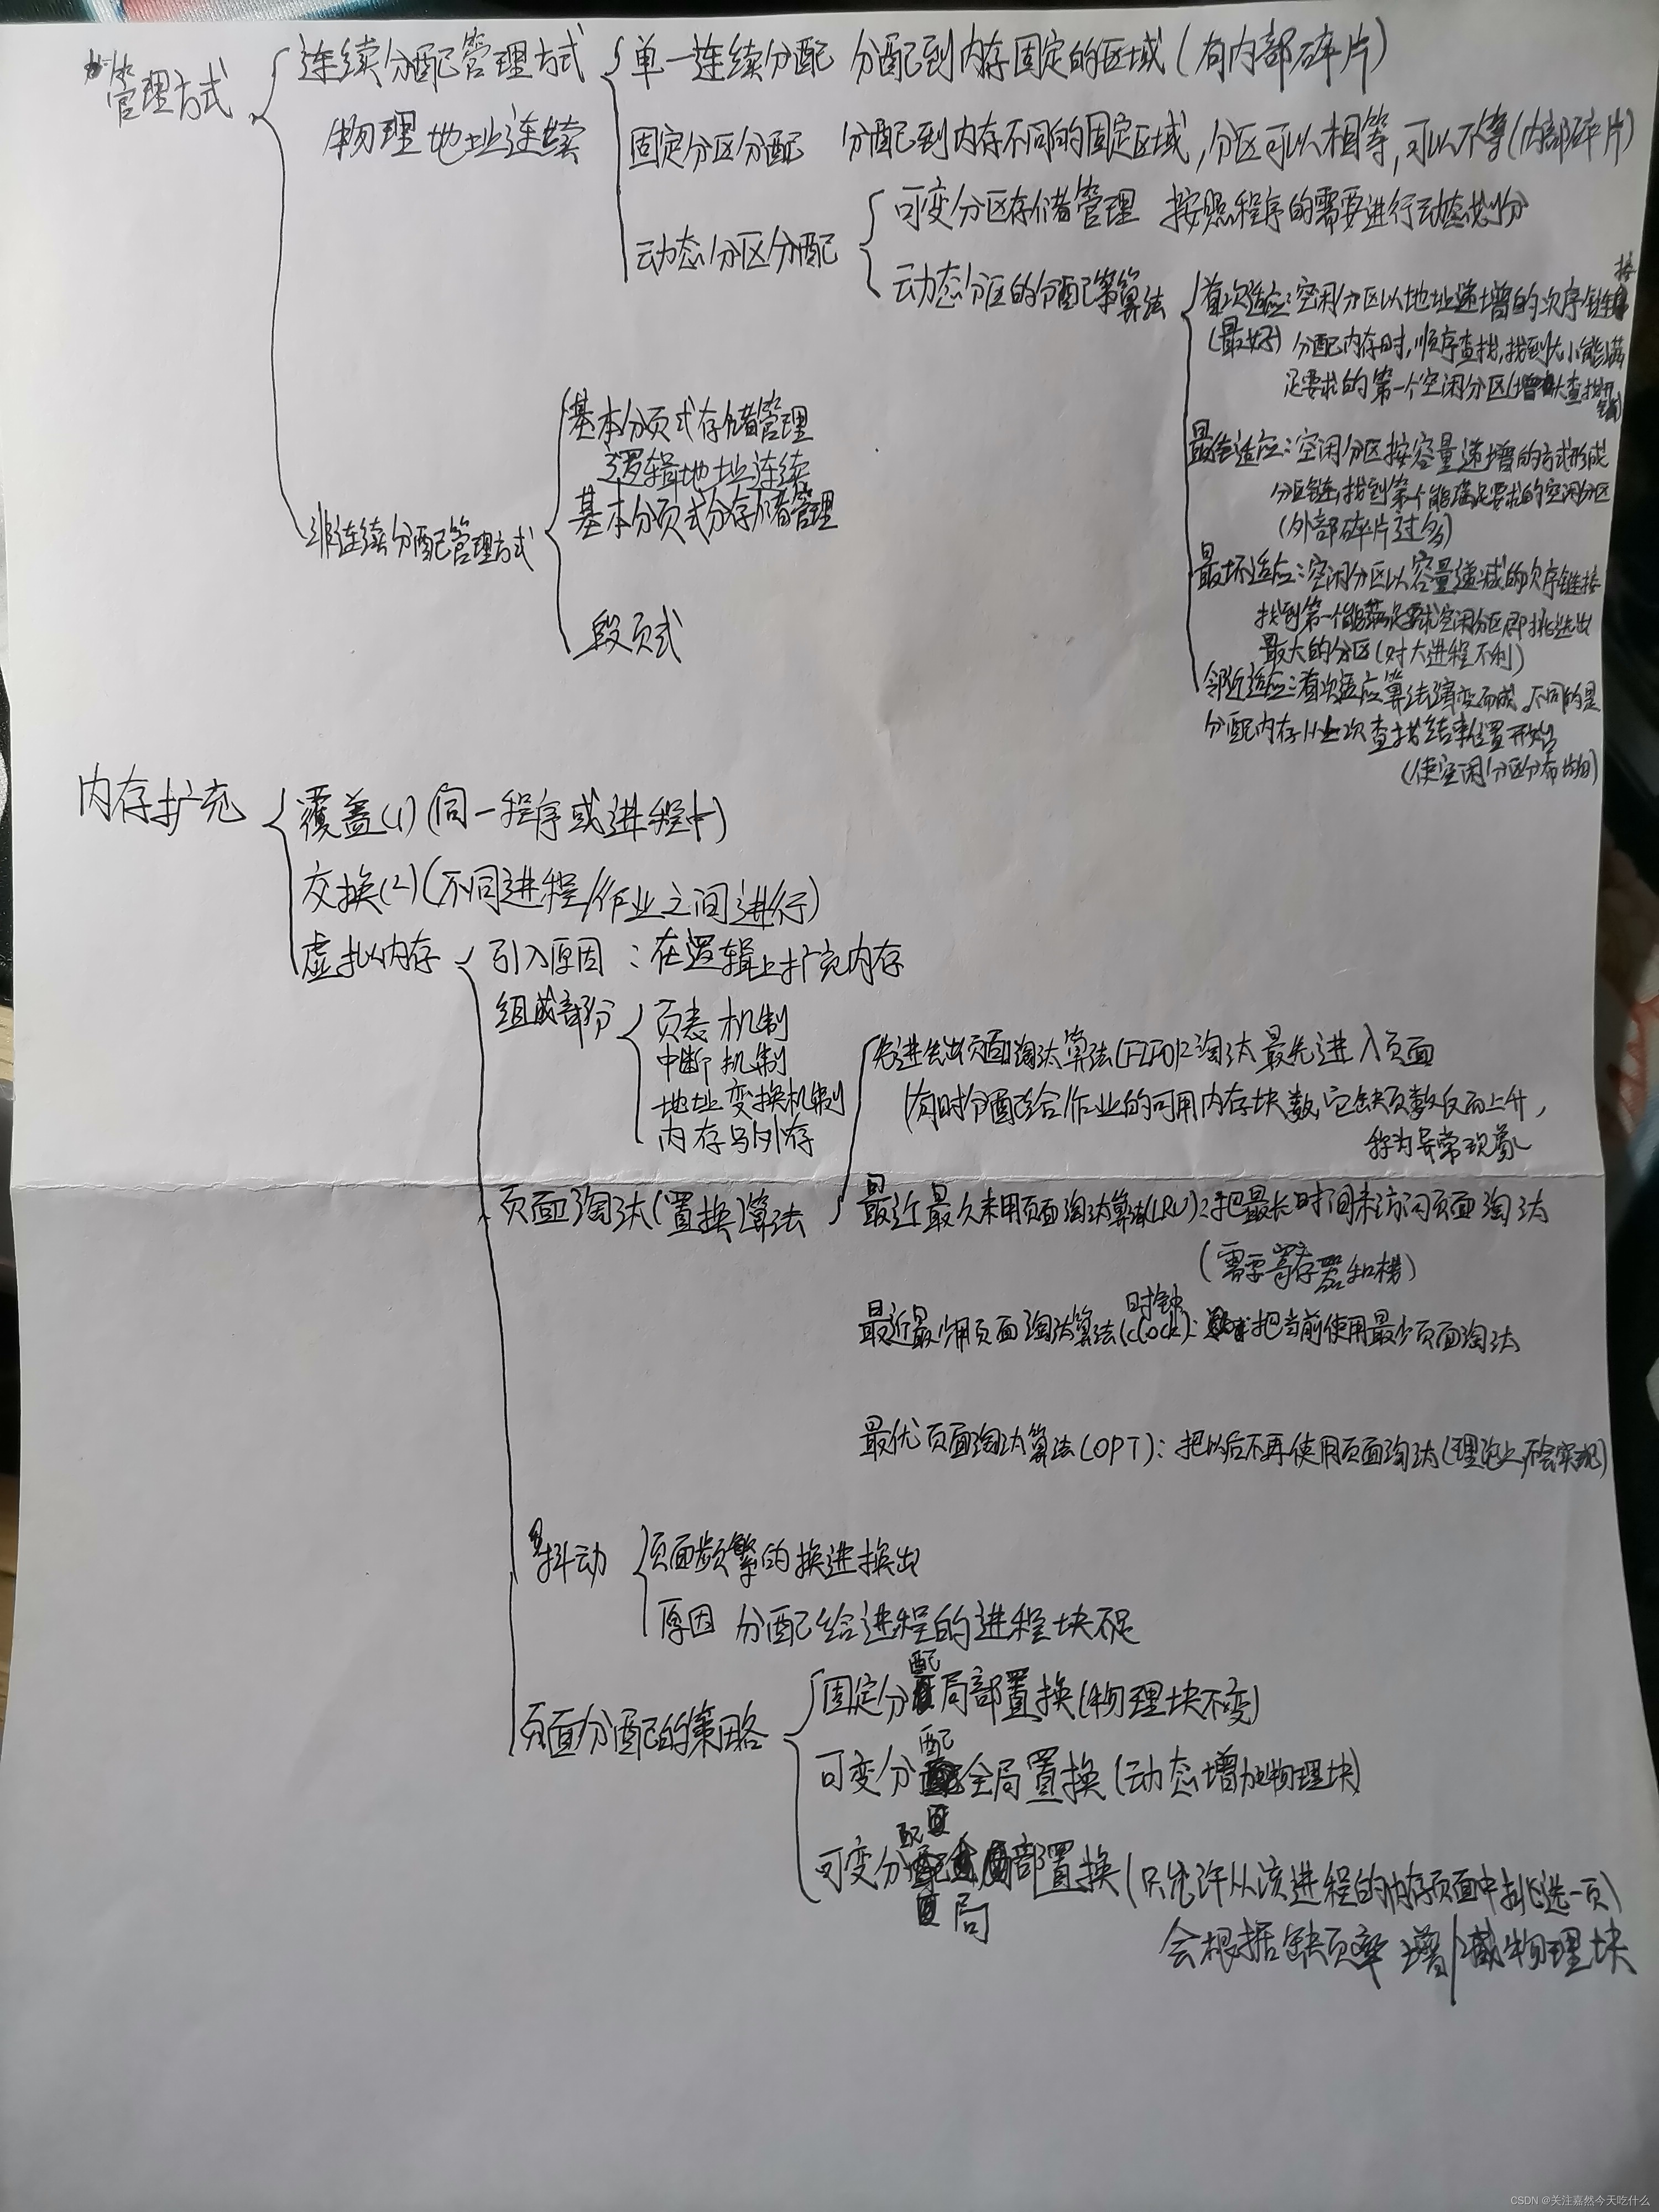 管理方式
连续分配管理方式
物理地址连续
单一连续分配 分配到内存固定的区域(有内部碎片)
固定分区分配 分配到内存不同的固定区域,分区可以相等,可以不等(内部碎片)
动态分区分配
可变分区存储管理 按照程序的需要进行动态划分
动态分区的分配算法
首次适应:空闲分区以地址递增的次序链接
(最好) 分配内存时,顺序查找,找到大小能满
足要求的第一个空闲分区(增大查找开销)
最佳适应:空闲分区按容量递增的方式形成
分区链,找到第一个能满足要求的空闲分区
(外部碎片过多)
最坏适应:空闲分区以容量递减的次序链接
找到第一个能满足要求空闲分区即挑选出
最大的分区(对大进程不利)
邻近适应:首次适应算法演变而成,不同的是
分配内存从上次查找结束位置开始
(使空闲分区分布均匀)
非连续分配管理方式
基本分页式存储管理
逻辑地址连续
基本分页式分存储管理
段页式
内存扩充
覆盖(1)(同一程序或进程中)
交换(2)(不同进程/作业之间进行)
虚拟内存
引入原因:在逻辑上扩充内存
组成部分
页表机制
中断机制
地址变换机制
内存与外存
页面淘汰(置换)算法
先进先出页面淘汰算法(FIFO):淘汰最先进入页面
(有时分配给作业的可用内存块数,它缺页数反而上升,
称为异常现象
最近最久未用页面淘汰算法(LRU):把最长时间未访问页面淘汰
(需要寄存器和栈)
时钟
最近最少用页面淘汰算法(clock): 把当前使用最少页面淘汰
最优页面淘汰算法(OPT):把以后不再使用页面淘汰(理论上,不会实现)
抖动
页面频繁的换进换出
原因 分配给进程的进程块不足
页面分配的策略
固定分配局部置换(物理块不变)
可变分配全局置换(动态增加物理块)
可变分配局部置换(只允许从该进程的内存页面中挑选一页)
会根据缺页率增/减物理块
CSDN @关注嘉然今天吃什么